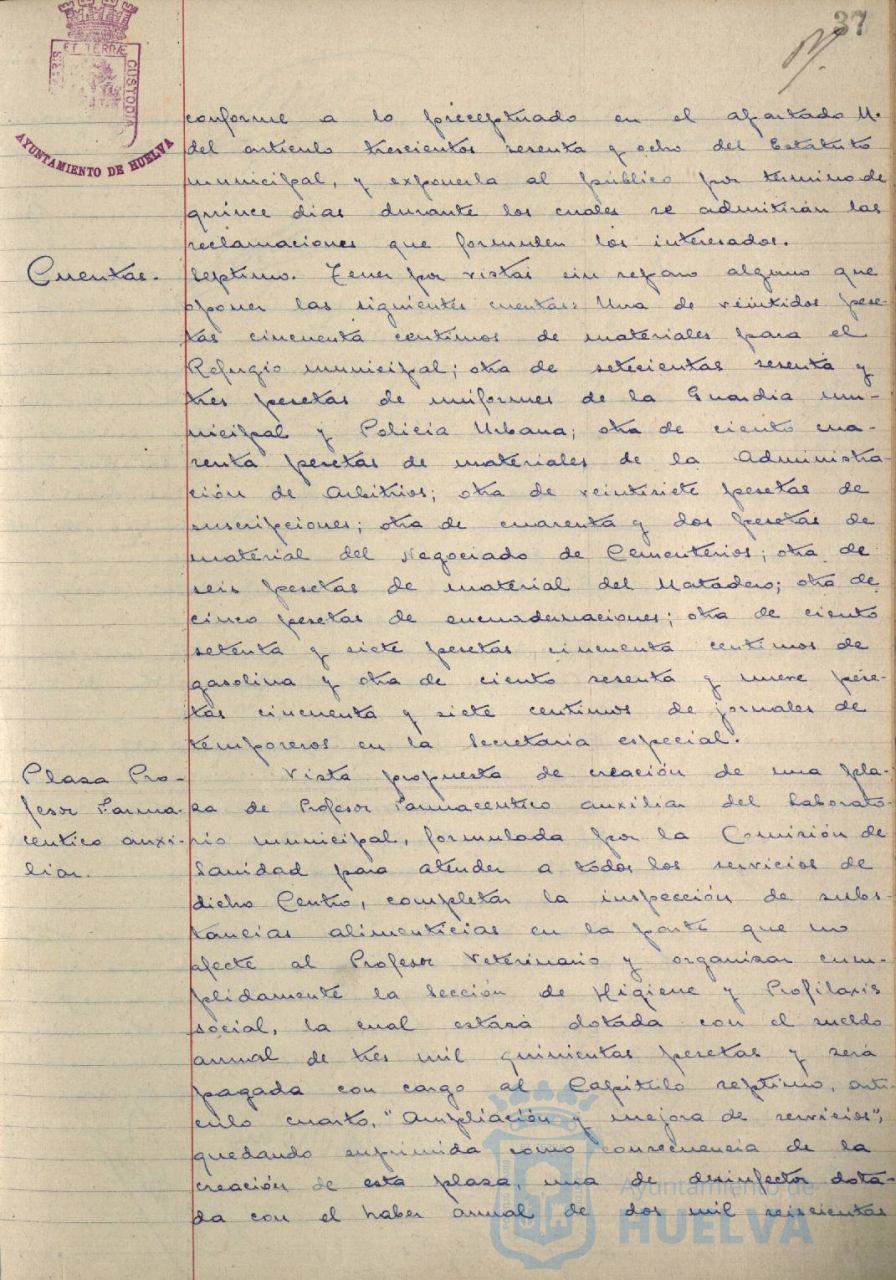 37
PORTUS MARIS ET TERRÆ CUSTODIA
AYUNTAMIENTO DE HUELVA
conforme a lo preceptuado en el apartado M.
del artículo trescientos sesenta y ocho del Estatuto
municipal, y exponerla al público por término de
quince días durante los cuales se admitirán las
reclamaciones que formulen los interesados.
Cuentas.
Septimo. Tener por vistas sin reparo alguno que
oponer las siguientes cuentas: Una de veintidos pese-
tas cincuenta centimos de materiales para el
Refugio municipal; otra de setecientas sesenta y
tres pesetas de uniformes de la Guardia mu-
nicipal y Policía Urbana; otra de ciento cua-
renta pesetas de materiales de la Administra-
ción de Arbitrios; otra de veintisiete pesetas de
suscripciones; otra de cuarenta y dos pesetas de
material del Negociado de Cementerios; otra de
seis pesetas de material del Matadero; otra de
cinco pesetas de encuadernaciones; otra de ciento
setenta y siete pesetas cincuenta centimos de
gasolina y otra de ciento sesenta y nueve pese-
tas cincuenta y siete centimos de jornales de
temporeros en la Secretaría especial.
Plaza Pro-
fesor Farma-
ceutico auxi-
liar.
Vista propuesta de creación de una pla-
za de Profesor Farmaceutico auxiliar del Laborato-
rio municipal, formulada por la Comisión de
Sanidad para atender a todos los servicios de
dicho Centro, completar la inspección de subs-
tancias alimenticias en la parte que no
afecte al Profesor Veterinario y organizar cum-
plidamente la Sección de Higiene y Profilaxis
social, la cual estará dotada con el sueldo
annal de tres mil quinientas pesetas y será
pagada con cargo al Capitulo septimo, arti-
culo cuarto, "Ampliación y mejora de servicios",
quedando suprimida como consecuencia de la
creación de esta plaza, una de desinfector dota-
da con el haber annal de dos mil seiscientas
Ayuntamiento de
HUELVA